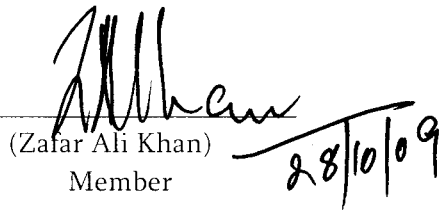 ZAKhan
(Zafar Ali Khan)
Member
28/10/09